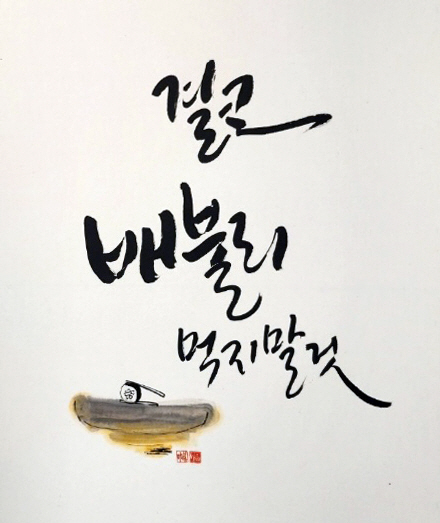 결코
배불리
먹지말것